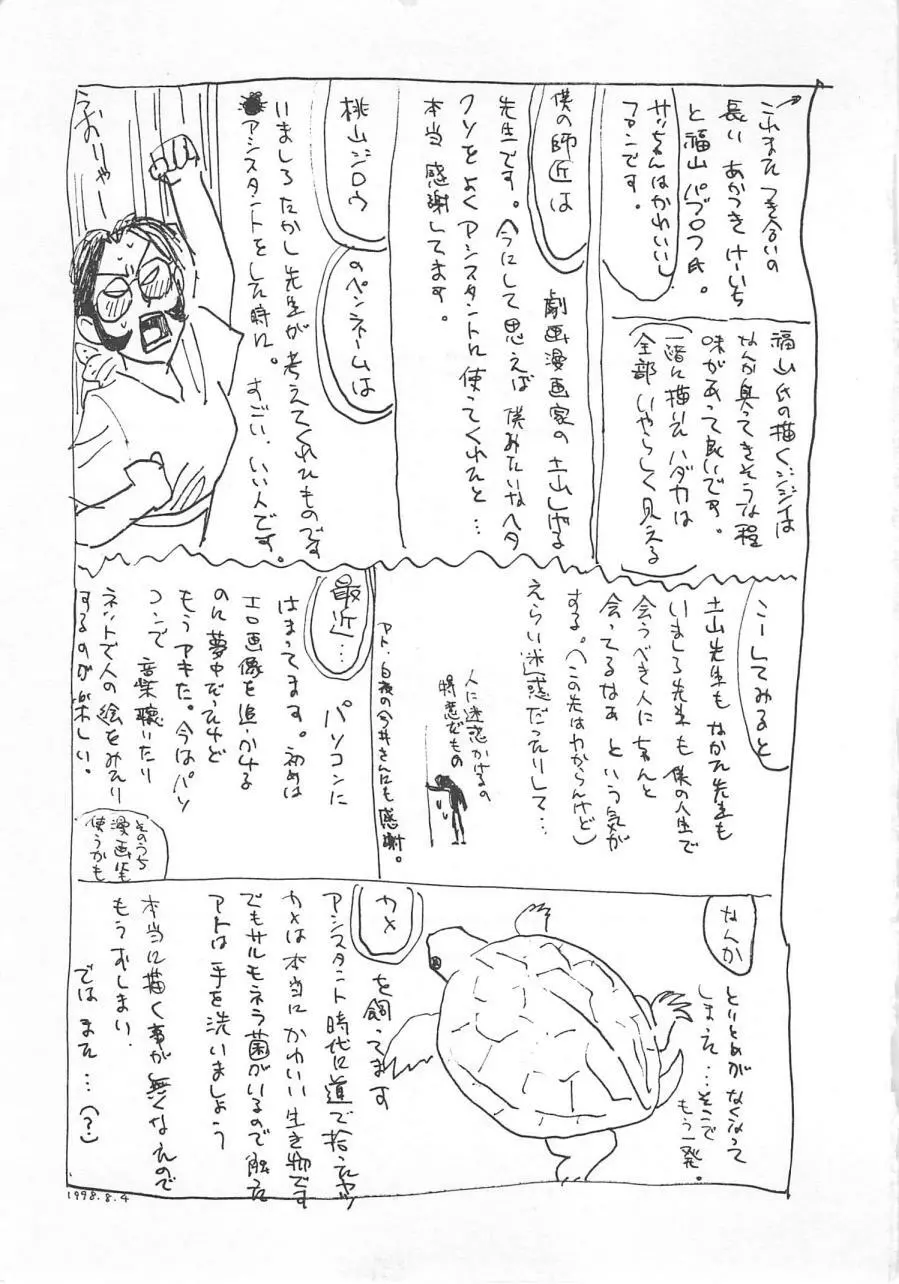 これまたつき合いの
長い あかつきけーいち
と福山パブロフ氏。
サッちゃんはかわいい
ファンです。
福山氏の描くジジイは
なんか臭ってきそうな程
味があって良いです。
一緒に描いたハダカは
全部いやらしく見える
僕の師匠は
劇画漫画家の土山しげる
先生です。今にして思えば僕みたいなヘタ
クソをよくアシスタントに使ってくれたと…
本当感謝してます。
桃山ジロウ
のペンネームは
いましろたかし先生が考えてくれたものです
アシスタントをした時に。すごい、いい人です。
うおりゃー
こーしてみると
土山先生もなかた先生も
いましろ先生も僕の人生で
会うべき人にちゃんと
会ってるなぁという気が
する。(この先はわからんけど)
えらい迷惑だったりして…
人に迷惑かけるの
得意だもの
アト、白夜の今井さんにも感謝。
最近…
パソコンに
はまってます。初めは
エロ画像を追いかける
のに夢中だったけど
もうアキた。今はパソ
コンで音楽聴いたり
ネットで人の絵をみたり
するのが楽しい。
そのうち
漫画にも
使うかも
なんか
とりとめがなくなって
しまった…そこで
もう一発。
カメ
を飼ってます
アシスタント時代に道で拾ったヤツ
カメは本当にかわいい生き物です
でもサルモネラ菌がいるので触った
アトは手を洗いましょう
本当に描く事が無くなったので
もうおしまい。
では また…(?)
1998.8.4